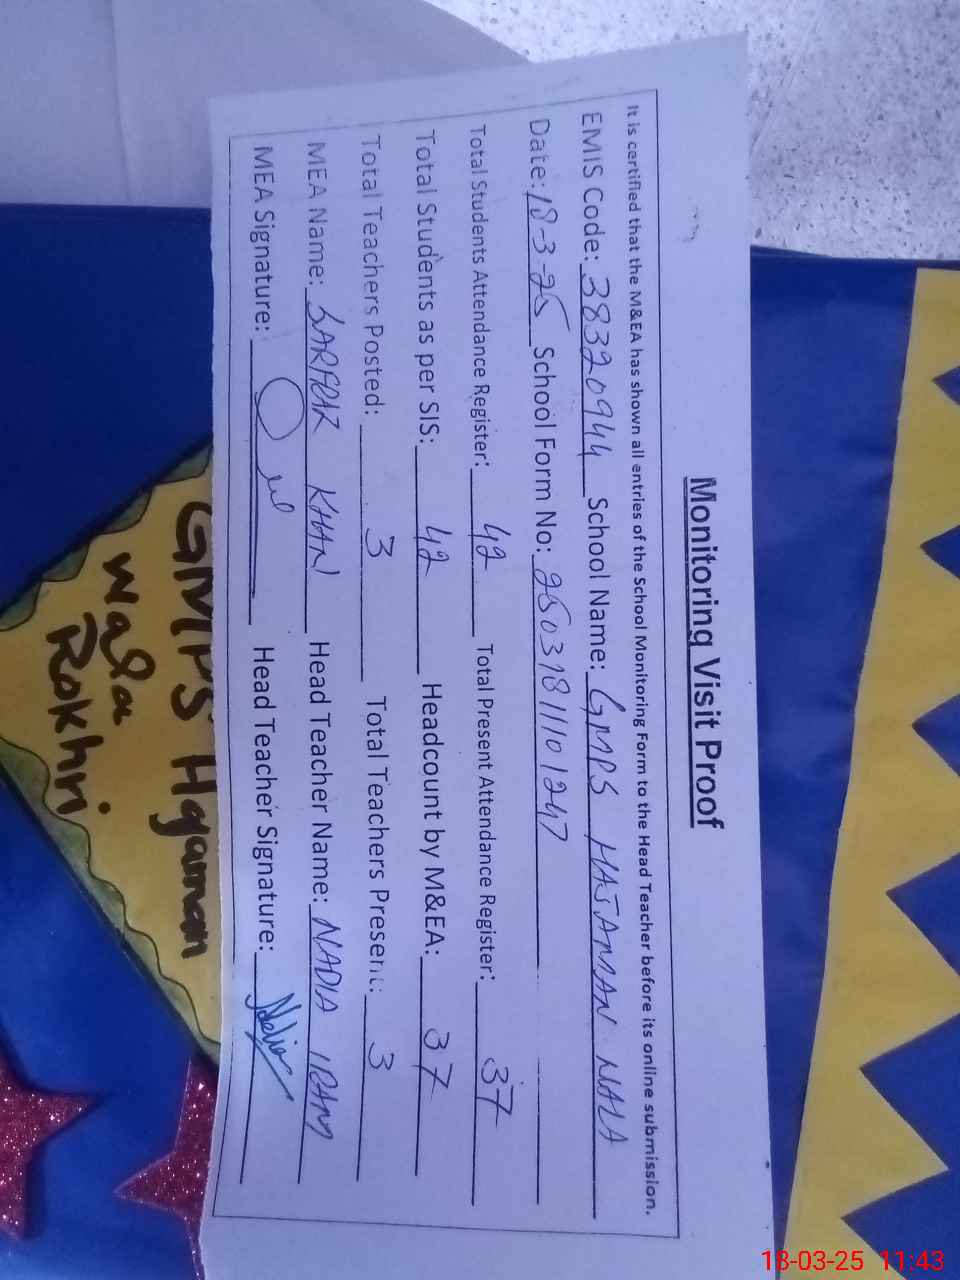 Monitoring Visit Proof
It is certified that the M&EA has shown all entries of the School Monitoring Form to the Head Teacher before its online submission.
EMIS Code: 38320944 School Name: GMPS HAJAMAN WALA
Date: 18-3-25 School Form No: 25031811101247
Total Students Attendance Register: 42 Total Present Attendance Register: 37
Total Students as per SIS: 42 Headcount by M&EA: 37
Total Teachers Posted: 3 Total Teachers Present: 3
MEA Name: SARFRAZ KHAN Head Teacher Name: NADIA IRAM
MEA Signature: Head Teacher Signature: Nadia
GMPS Hajaman
wala
Rokhri
18-03-25 11:43